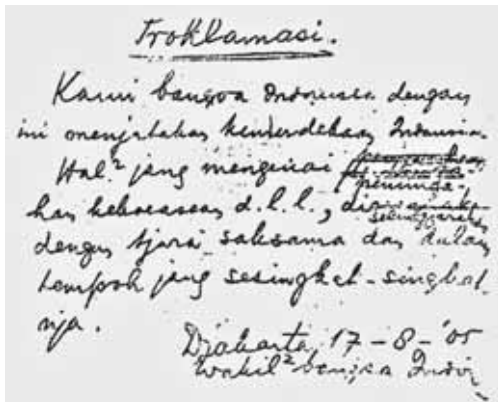 Proklamasi.
Kami bangsa Indonesia dengan
ini menjatakan kemerdekaan Indonesia.
Hal² jang mengenai
peminda-
han kekoeasaan d.l.l., di
selenggarakan
dengan tjara saksama dan dalam
tempoh jang sesingkat-singkat-
nja.
Djakarta, 17-8-'05
Wakil² bangsa